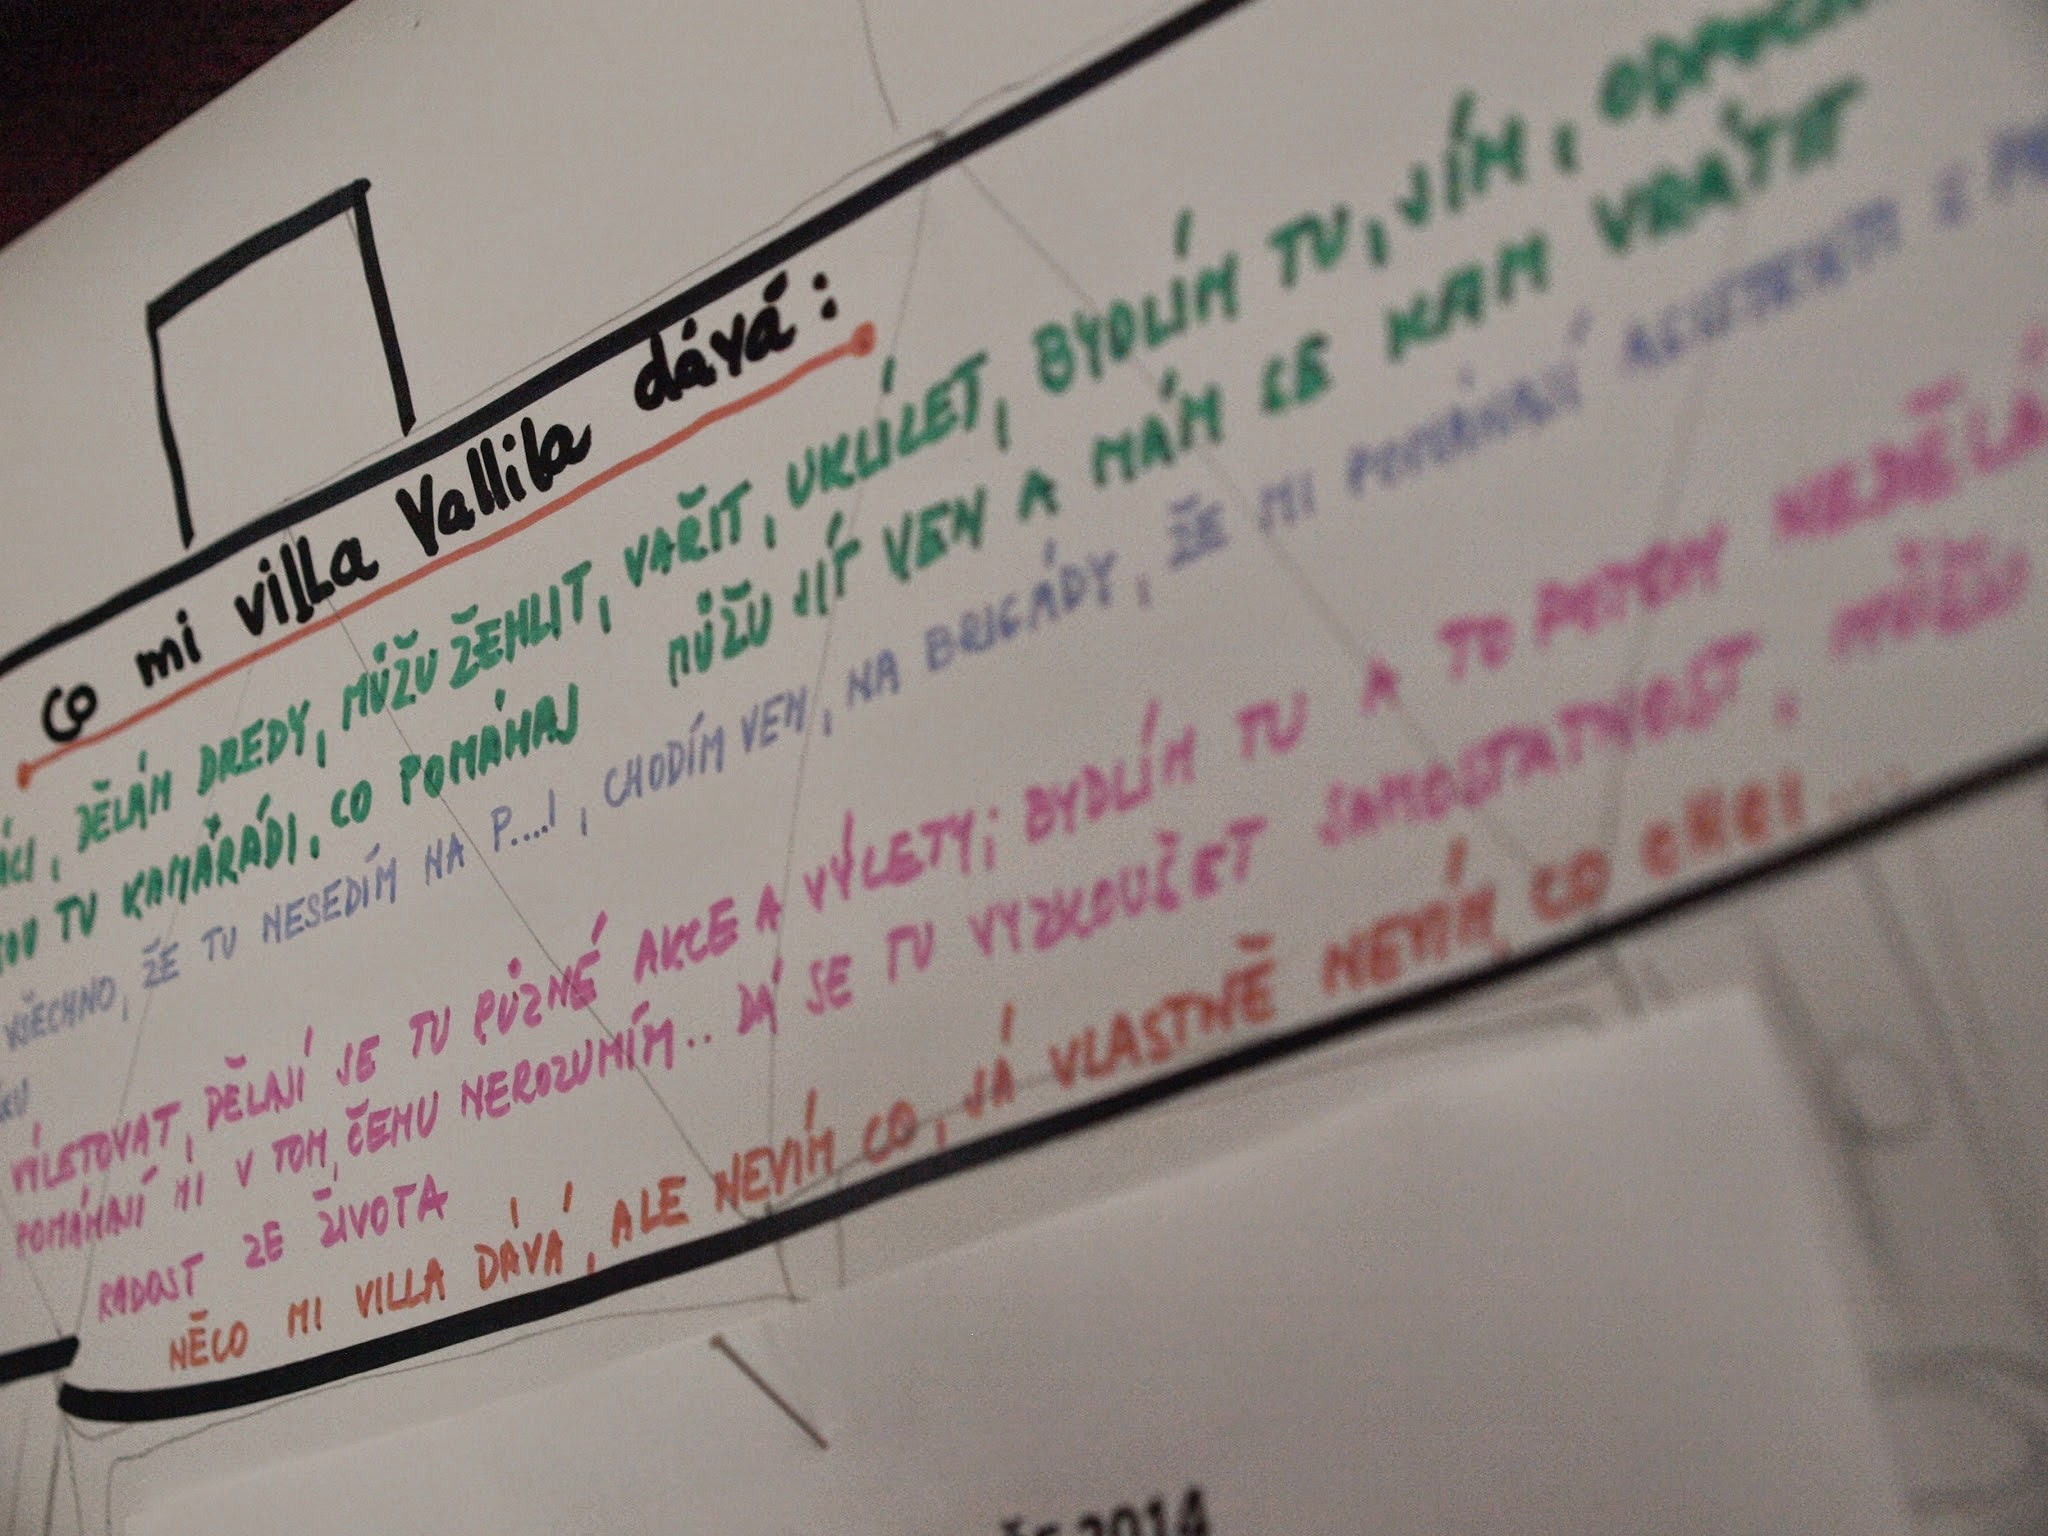 co mi villa Vallila dává:
DĚLÁM DREDY, MŮŽU ŽEHLIT, VAŘIT, UKLÍZET, BYDLÍM TU, JÍM,
TU KAMARÁDI, CO POMÁHAJ MŮŽU JÍT VEN A MÁM SE KAM VRÁTIT
VŠECHNO, ŽE TU NESEDÍM NA P....I, CHODÍM VEN, NA BRIGÁDY, ŽE MI POMÁHAJÍ ASISTENTI
VÝLETOVAT, DĚLAJÍ SE TU RŮZNÉ AKCE A VÝLETY; BYDLÍM TU A TO POTOM
POMÁHAJÍ MI V TOM, ČEMU NEROZUMÍM.. DÁ SE TU VYZKOUŠET SAMOSTATNOST, MŮŽU
RADOST ZE ŽIVOTA
NĚCO MI VILLA DÁVÁ, ALE NEVÍM CO, JÁ VLASTNĚ NEVÍM, CO CHCI...
2014